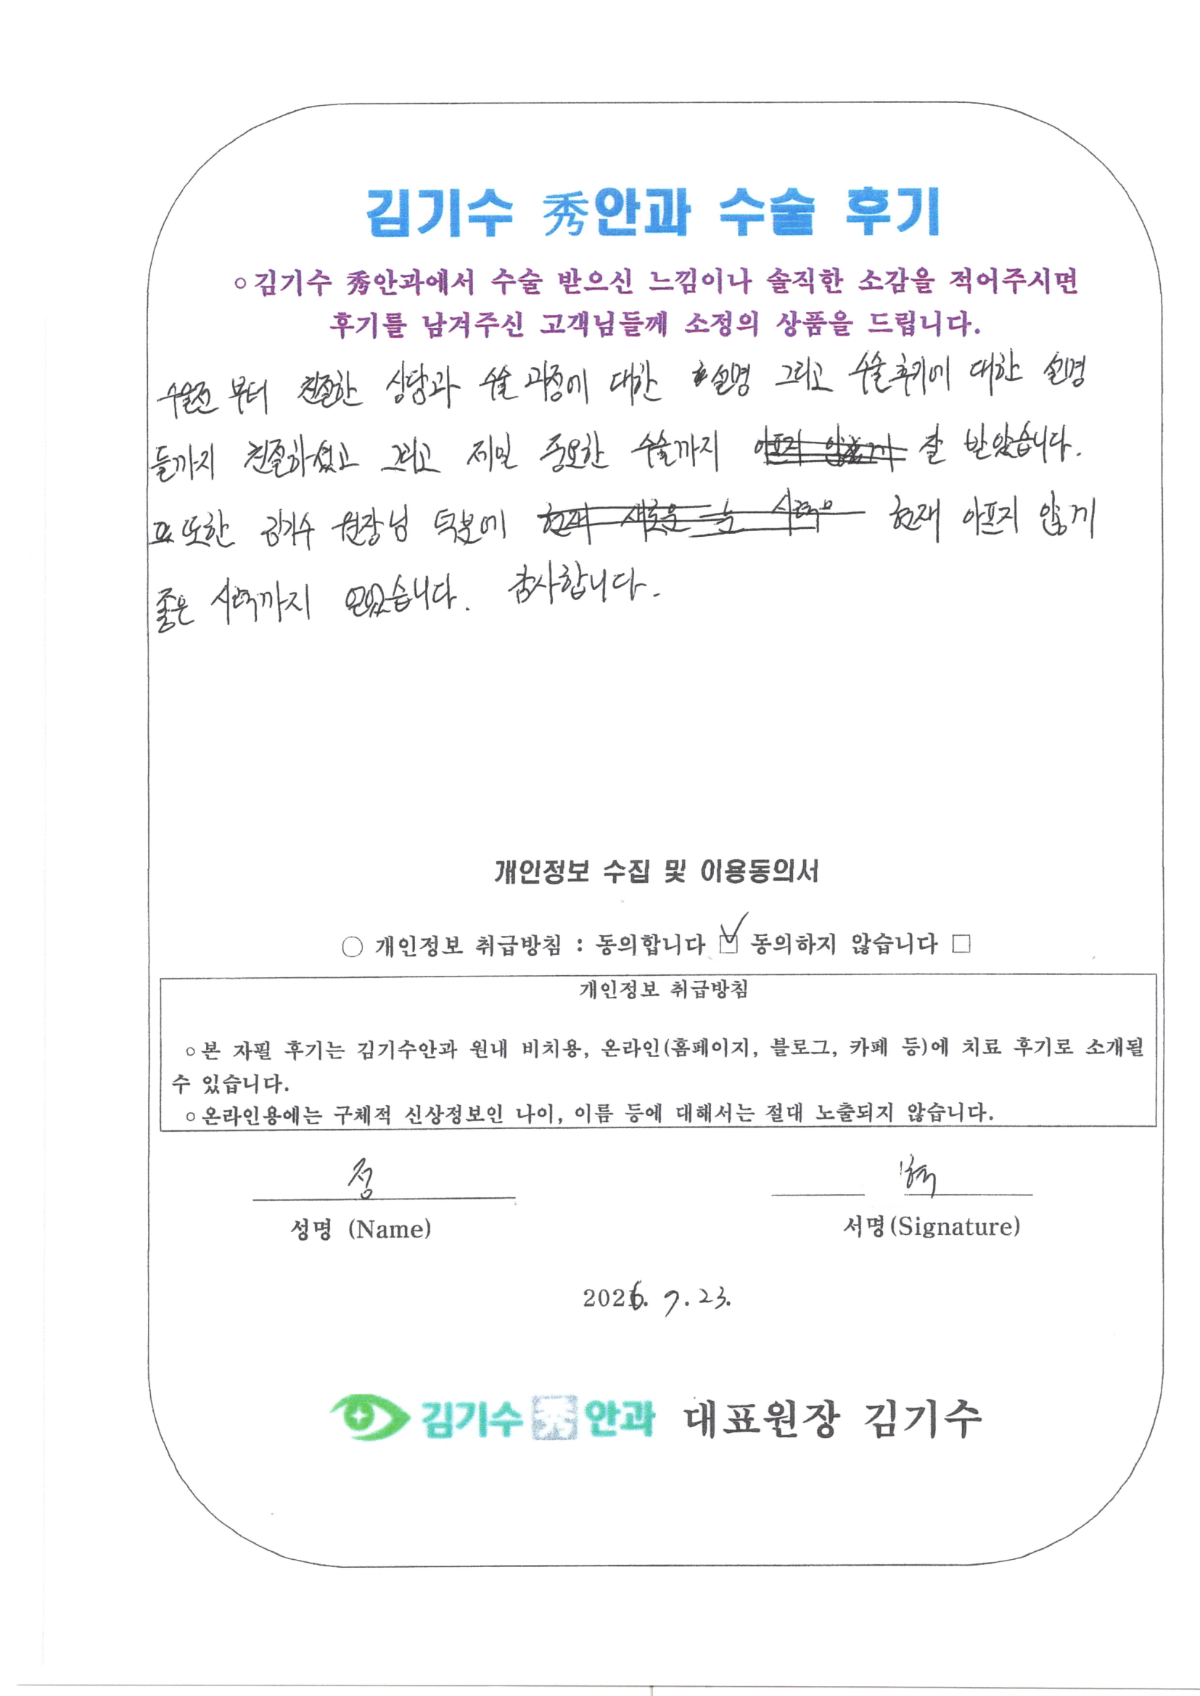 김기수 秀안과 수술 후기
○김기수 秀안과에서 수술 받으신 느낌이나 솔직한 소감을 적어주시면
후기를 남겨주신 고객님들께 소정의 상품을 드립니다.
수술전 부터 친절한 상담과 수술 과정에 대한 설명 그리고 수술후기에 대한 설명
들까지 친절하셨고 그리고 제일 중요한 수술까지 아프지 않게 잘 받았습니다.
또한 김기수 원장님 덕분에 현재 새로운 눈 시력으 현재 아프지 않게
좋은 시력까지 얻었습니다. 감사합니다.
개인정보 수집 및 이용동의서
○ 개인정보 취급방침 : 동의합니다 ☑ 동의하지 않습니다 □
개인정보 취급방침
○본 자필 후기는 김기수안과 원내 비치용, 온라인(홈페이지, 블로그, 카페 등)에 치료 후기로 소개될
수 있습니다.
○온라인용에는 구체적 신상정보인 나이, 이름 등에 대해서는 절대 노출되지 않습니다.
정
성명 (Name) 서명(Signature)
2026. 7. 23.
김기수 秀 안과 대표원장 김기수